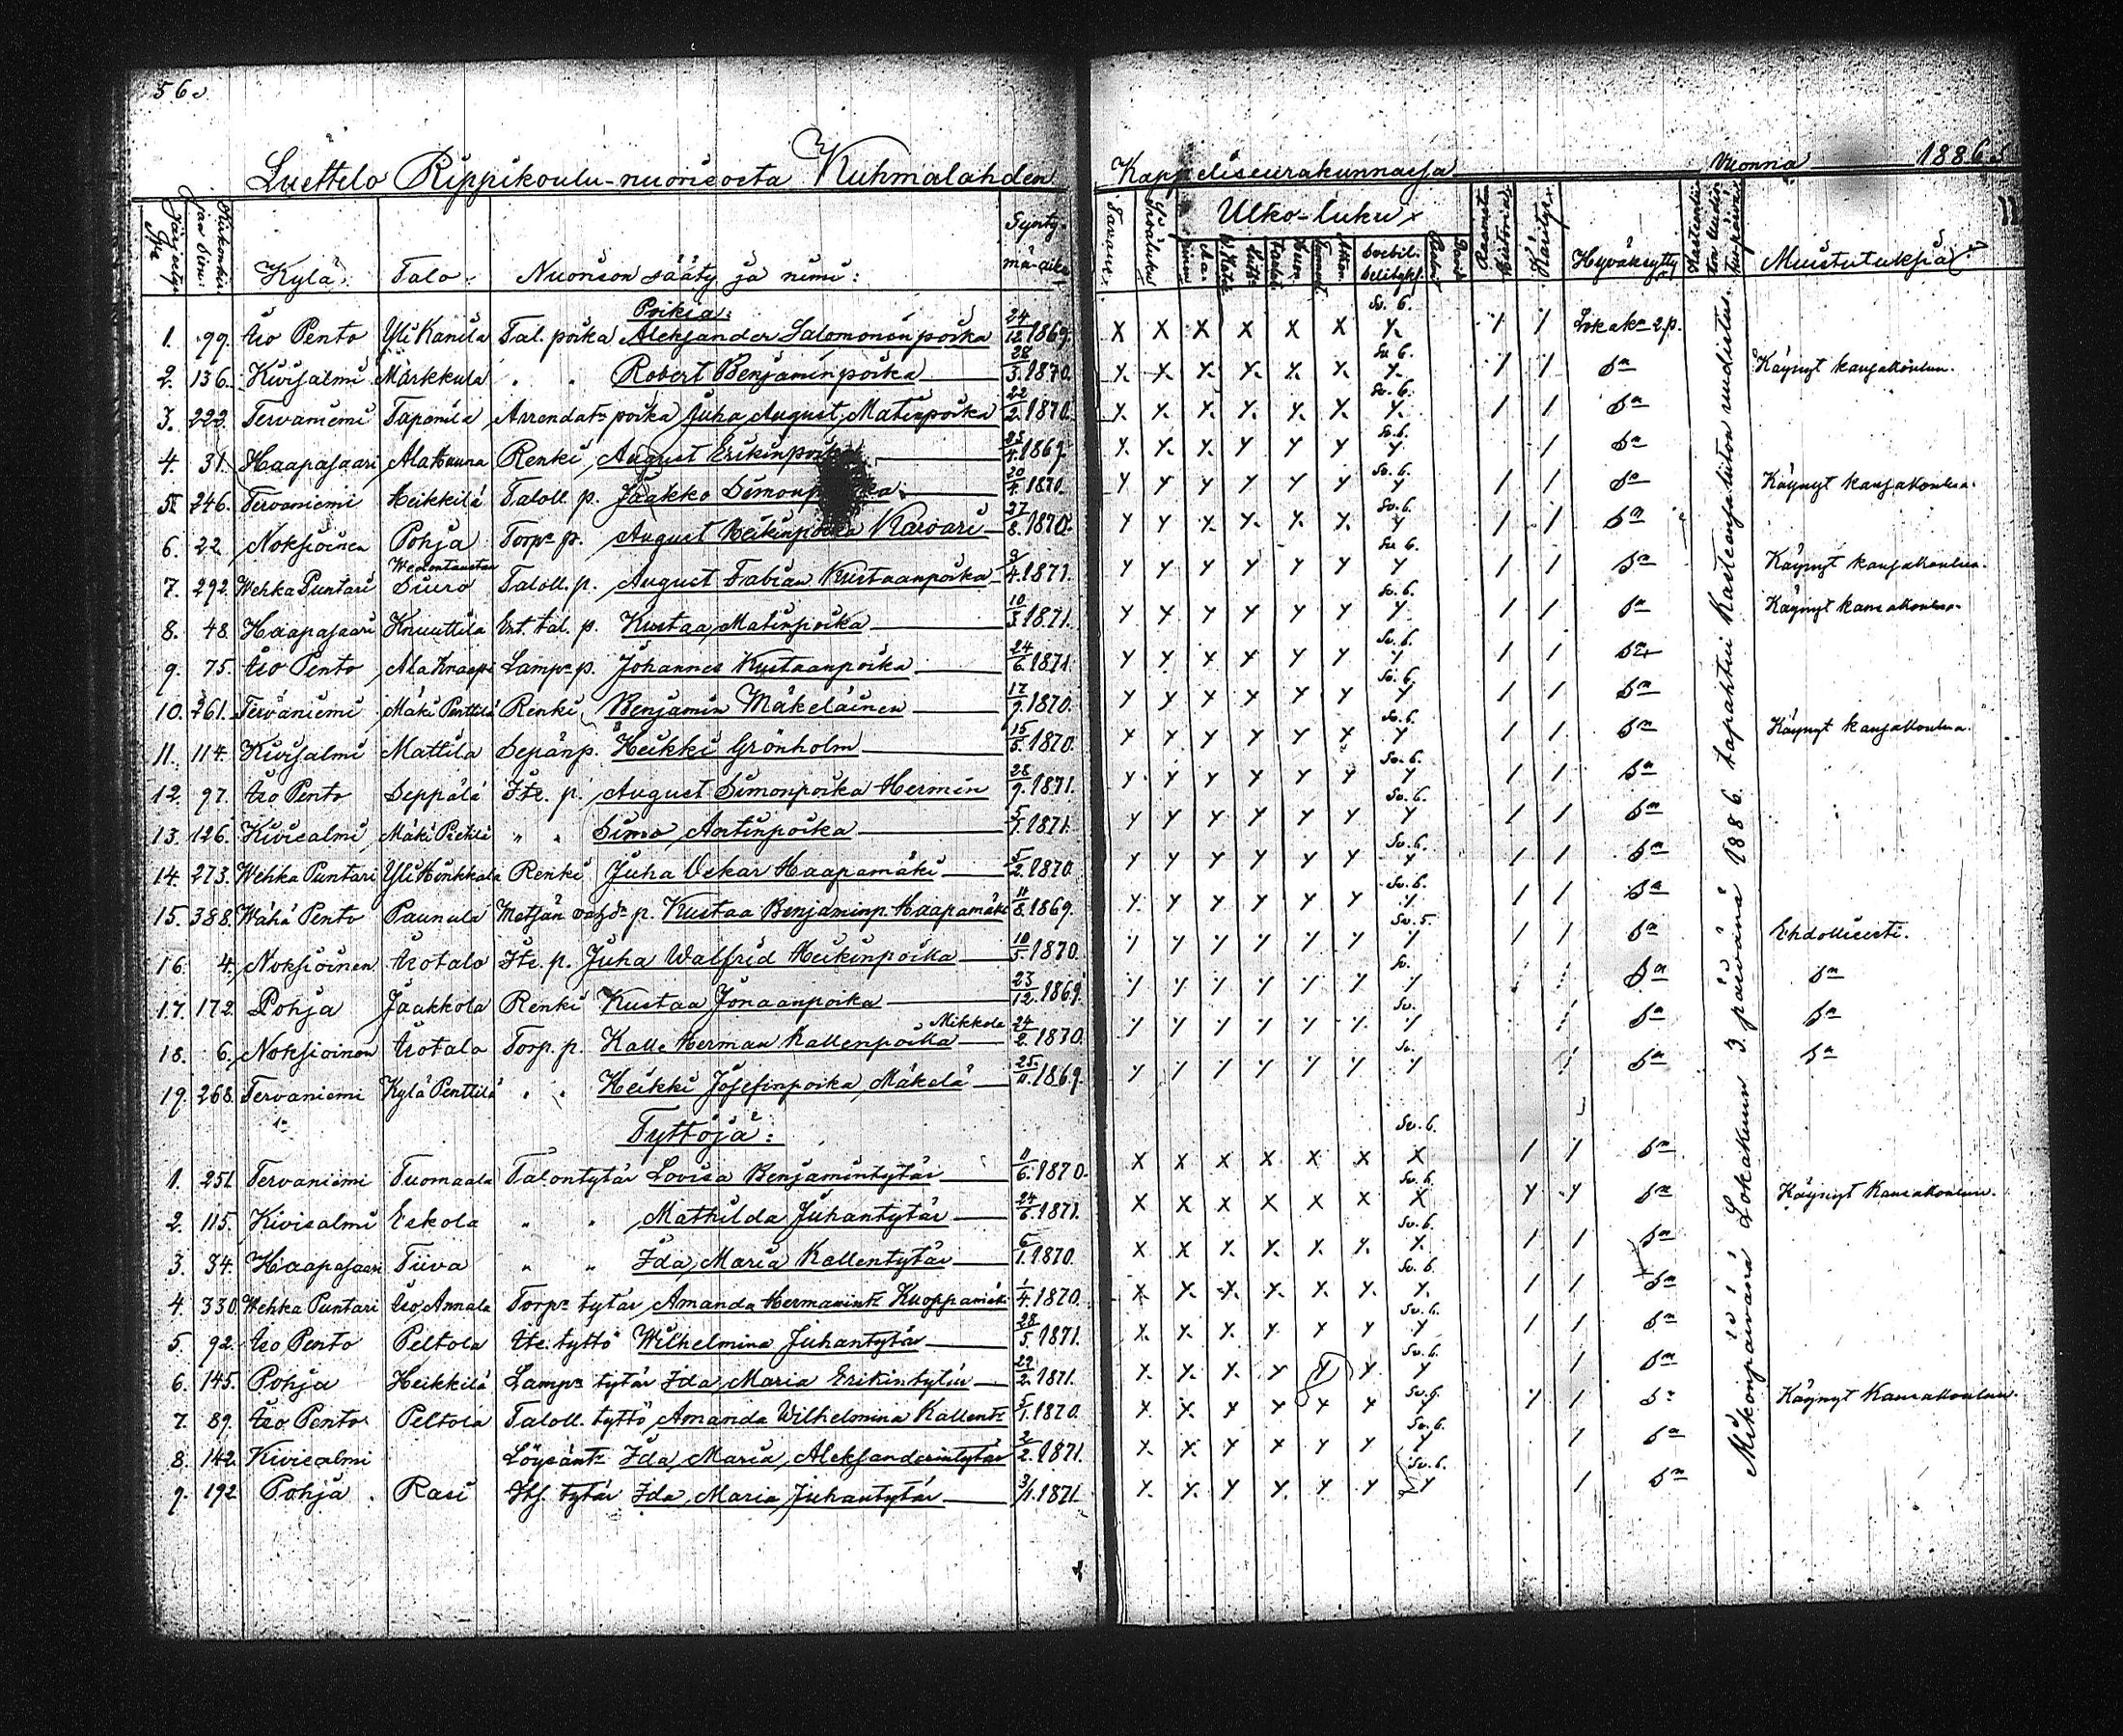 56.
Luettelo Rippikoulu-nuorisosta Kuhmalahden Kappeliseurakunnassa Vuonna 1886.
Kylä. Talo. Nuorison sääty ja nimi: Synty-mä-aika Tavaus. Sisäluku Ulko-luku Hyväksytty Muistutuksia
Poikia:
1. 99. Iso Pento Yli Kanila Tal. poika Aleksander Salomoninpoika 24/12 1869. X X X X X X Sv. 6. X / / Lokak. 2 p.
2. 136. Kivisalmi Märkkula " " Robert Benjaminpoika 28/3 1870. X X X X X X Sv. 6. X / / Sa Käynyt kansakoulun.
3. 222. Tervaniemi Tapanila Arrendat. poika Juha August Matinpoika 22/2 1870. X X X X X X Sv. 6. X / / Sa
4. 31. Haapasaari Ala Renki August Erikinpoika 1869. X X X X X X Sv. 6. X / Sa
5. 246. Tervaniemi Heikkilä Taloll. p. Jaakko Simonp a. 20/4 1870. X X X X X X Sv. 6. X / / Sa Käynyt kansakoulua.
6. 22. Noksioinen Pohja Torp. p. August Heikinpoika Karvari 27/8 1870. X X X X X X Sv. 6. X / / Sa
7. 292. Wehka Puntari Siuro Taloll. p. August Fabian Kustaanpoika 9/4 1871. X X X X X X Sv. 6. X / / Sa Käynyt kansakoulua.
8. 48. Haapasaari Knuuttila tal. p. Kustaa Matinpoika 10/3 1871. X X X X X X Sv. 6. X / / Sa Käynyt kansakoulua.
9. 75. Iso Pento Ala Knaapi Lamp. p. Johannes Kustaanpoika 24/6 1871. X X X X X X Sv. 6. X / / Sa
10. 261. Tervaniemi Mäki Penttilä Renki Benjamin Mäkeläinen 17/9 1870. X X X X X X Sv. 6. X / / Sa
11. 114. Kivisalmi Mattila Sepänp. Heikki Grönholm 15/5 1870. X X X X X X Sv. 6. X / / Sa Käynyt kansakoulua.
12. 97. Iso Pento Seppälä Itr. p. August Simonpoika Hermin 28/9 1871. X X X X X X Sv. 6. X / / Sa
13. 126. Kivisalmi Mäki Pietilä " " Simo Antinpoika 1871. X X X X X X Sv. 6. X / / Sa
14. 273. Wehka Puntari Yli Hinkkala Renki Juha Oskar Haapamäki 5/2 1870 X X X X X X Sv. 6. X / / Sa
15. 388. Wähä Pento Paunula Metsän p. Kustaa Benjaminp. Haapamäki 11/8 1869. X X X X X X Sv. 6. X / / Sa
16. 4. Noksioinen Isotalo Itr. p. Juha Walfrid Heikinpoika 10/5 1870. X X X X X X Sv. 5. X / / Sa Ehdollisesti.
17. 172. Pohja Jaakkola Renki Kustaa Jonaanpoika 23/12 1869. X X X X X X Sv. X / / Sa Sa
18. 6. Noksioinen Isotalo Torp. p. Kalle Herman Kallenpoika Mikkola 24/2 1870. X X X X X X Sv. X / Sa Sa
19. 268. Tervaniemi Kylä Penttilä " " Heikki Josefinpoika Mäkelä 25/11 1869. X X X X X X Sv. X / Sa Sa
Tyttöjä:
1. 251. Tervaniemi Tuomaala Talontytär Lovisa Benjamintytär 11/6 1870. X X X X X X Sv. 6. X / / Sa
2. 115. Kivisalmi Eskola " " Mathilda Juhantytär 24/6 1871. X X X X X X Sv. 6. X X X Sa Käynyt Kansakoulun.
3. 34. Haapasaari Tiiva " " Ida Maria Kallentytär 6/1 1870. X X X X X X Sv. 6. X / / Sa
4. 330. Wehka Puntari Iso Annala Torp. tytär Amanda Hermanint. Kuoppamäki 1/4 1870. X X X X X X Sv. 6. X / / Sa
5. 92. Iso Pento Peltola Itr. tyttö Wilhelmina Juhantytär 28/5 1871. X X X X X X Sv. 6. X / / Sa
6. 145. Pohja Heikkilä Lamp. tytär Ida Maria Erikintytär 1871. X X X X X X Sv. 6. X / Sa
7. 89. Iso Pento Peltola Taloll. tyttö Amanda Wilhelmina Kallent. 5/1 1870. X X X X X X Sv. 6. X / / Sa Käynyt Kansakoulun.
8. 142. Kivisalmi Löysänt. Ida Maria Aleksanderintytär 2/2 1871. X X X X X X Sv. 6. X / Sa
9. 192. Pohja Rasi Its. tytär Ida Maria Juhantytär 3/1 1871. X X X X X X Sv. 6. X / Sa
Mikonpäivänä Lokakuun 3. päivänä 1886 tapahtui Kasteenliiton uudistus.